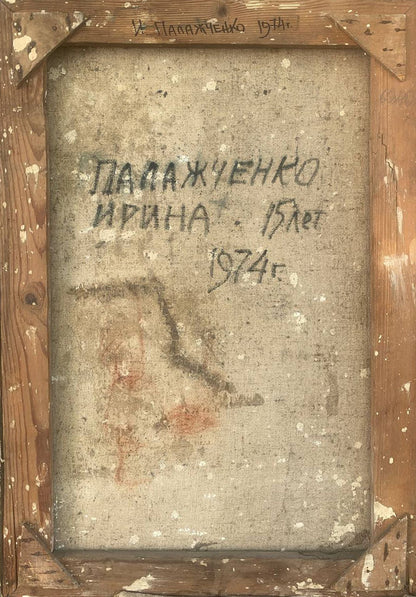 И. ПАЛАЖЧЕНКО 1974г.
ПАЛАЖЧЕНКО
ИРИНА. 15 лет
1974г.